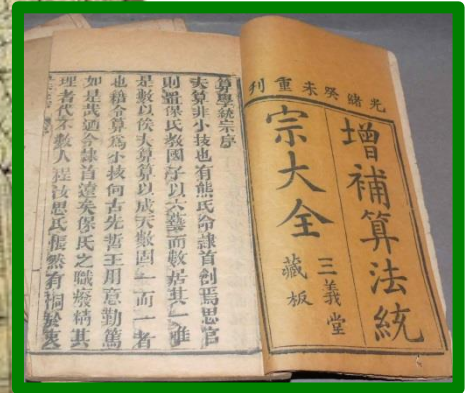 光緒癸未重刊
增補算法統
宗大全
三義堂
藏板
算學統宗序
夫算非小技也有熊氏命隸首創焉思官
則置保氏教國子以六藝而數居其一惟
是數以俟夫算算以成夫數固一而一者
也藉令算為小技何古先哲王用意勤篤
如是哉迺今隸首遠矣保氏之職廢精其
理者代不數人程汝思氏慨然有